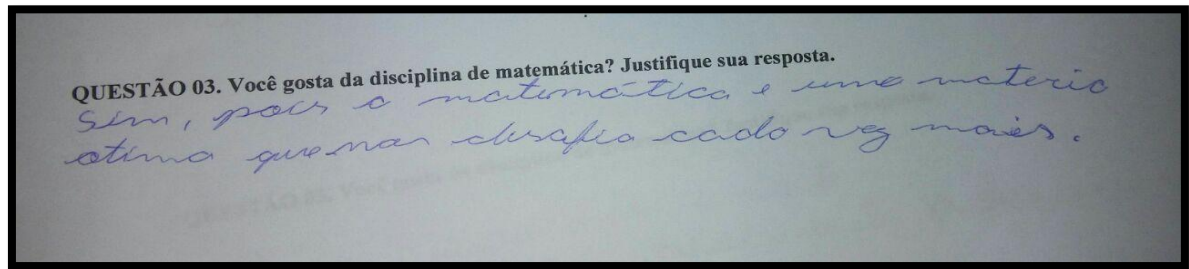 QUESTÃO 03. Você gosta da disciplina de matemática? Justifique sua resposta.
Sim, pois a matemática e uma materia
otima que nos desafia cada vez mais.